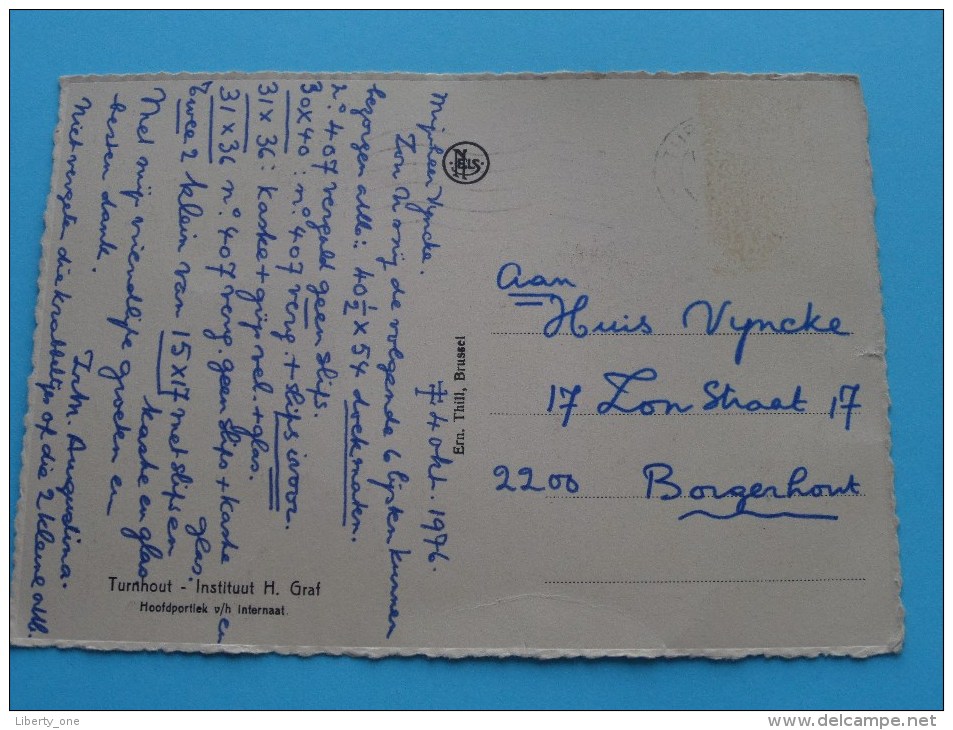 # 4 okt. 1976.
Mijnheer Vyncke.
Zou U mij de volgende 6 lijsten kunnen
bezorgen aub: 40 1/2 x 54 doekmaten.
n° 407 verguld geen slips.
30 x 40: n° 407 verg. + slips ivoor.
31 x 36: kaske + grijs vel. + glas.
31 x 36 n° 407 verg. geen slips + kaske en
glas.
Twee 2 klein van 15 x 17 met slips en
kaske en glas
Met mijn vriendelijke groeten en
besten dank.
Zr M. Augustina.
Niet vergeten die krabbeltjes of die 2 kleine aub.
NELS
Ern. Thill, Brussel
Aan
Huis Vyncke
17 Zon Straat 17
2200 Borgerhout
Turnhout - Instituut H. Graf
Hoofdportiek v/h Internaat.
Liberty_one
www.delcampe.net